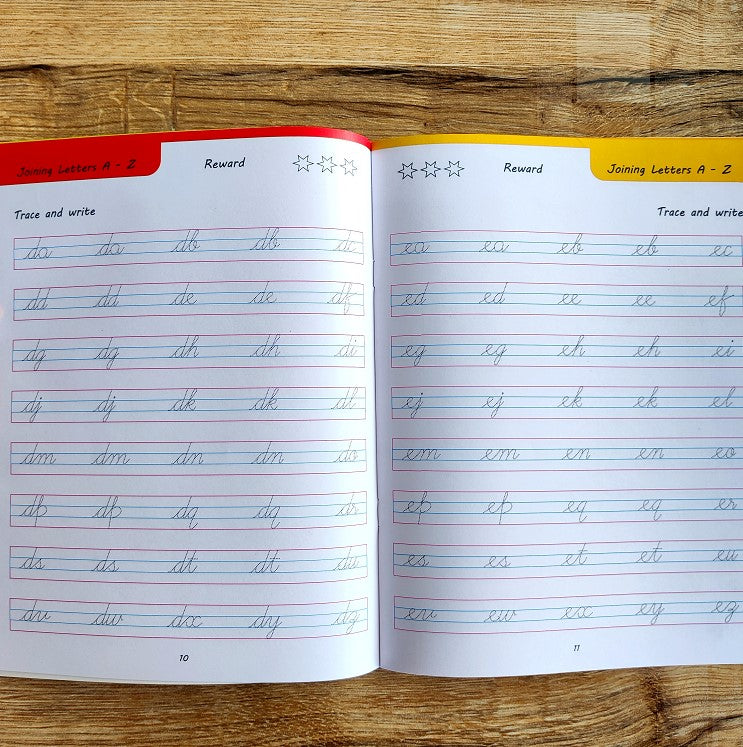 Joining Letters A - Z
Reward
Trace and write
da da db db dc
dd dd de de df
dg dg dh dh di
dj dj dk dk dl
dm dm dn dn do
dp dp dq dq dr
ds ds dt dt du
dv dw dx dy dz
10
Reward
Joining Letters A - Z
Trace and write
ea ea eb eb ec
ed ed ee ee ef
eg eg eh eh ei
ej ej ek ek el
em em en en eo
ep ep eq eq er
es es et et eu
ev ew ex ey ez
11